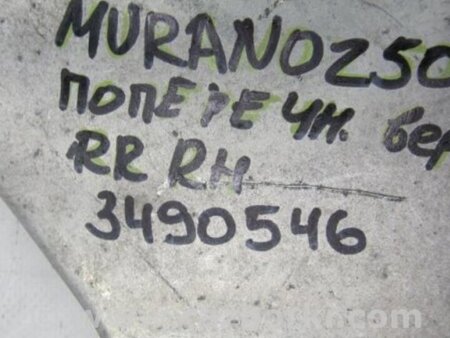 MURANOZ50
ПОПЕРЕЧН. вер
RR RH
3490546